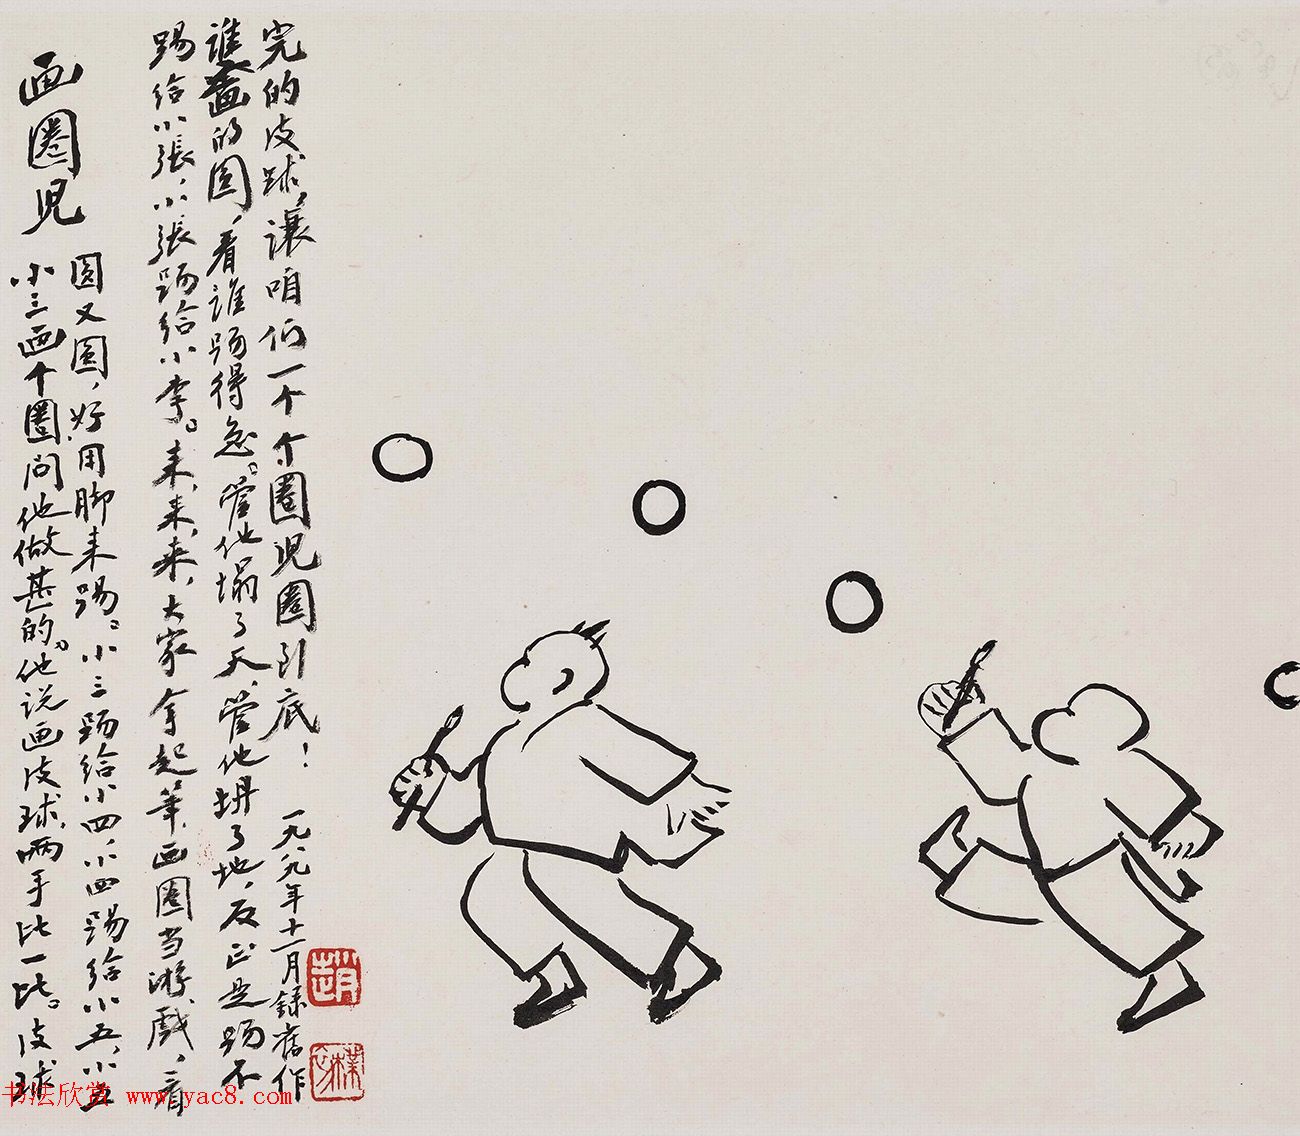 画圈児
小三画个圈问他做甚的。他说画皮球，两手比一比。皮球
圆又圆，好用脚来踢。小三踢给小四，小四踢给小五，小五
踢给小張，小張踢给小李。来，来，来，大家拿起筆，画圈当游戲，看
誰画的圆，看誰踢得急。管他塌了天，管他坍了地，反正是踢不
完的皮球，讓咱们一个个圈児圈到底！
一九八九年十一月録舊作
趙
樸初
书法欣赏 www.yac8.com